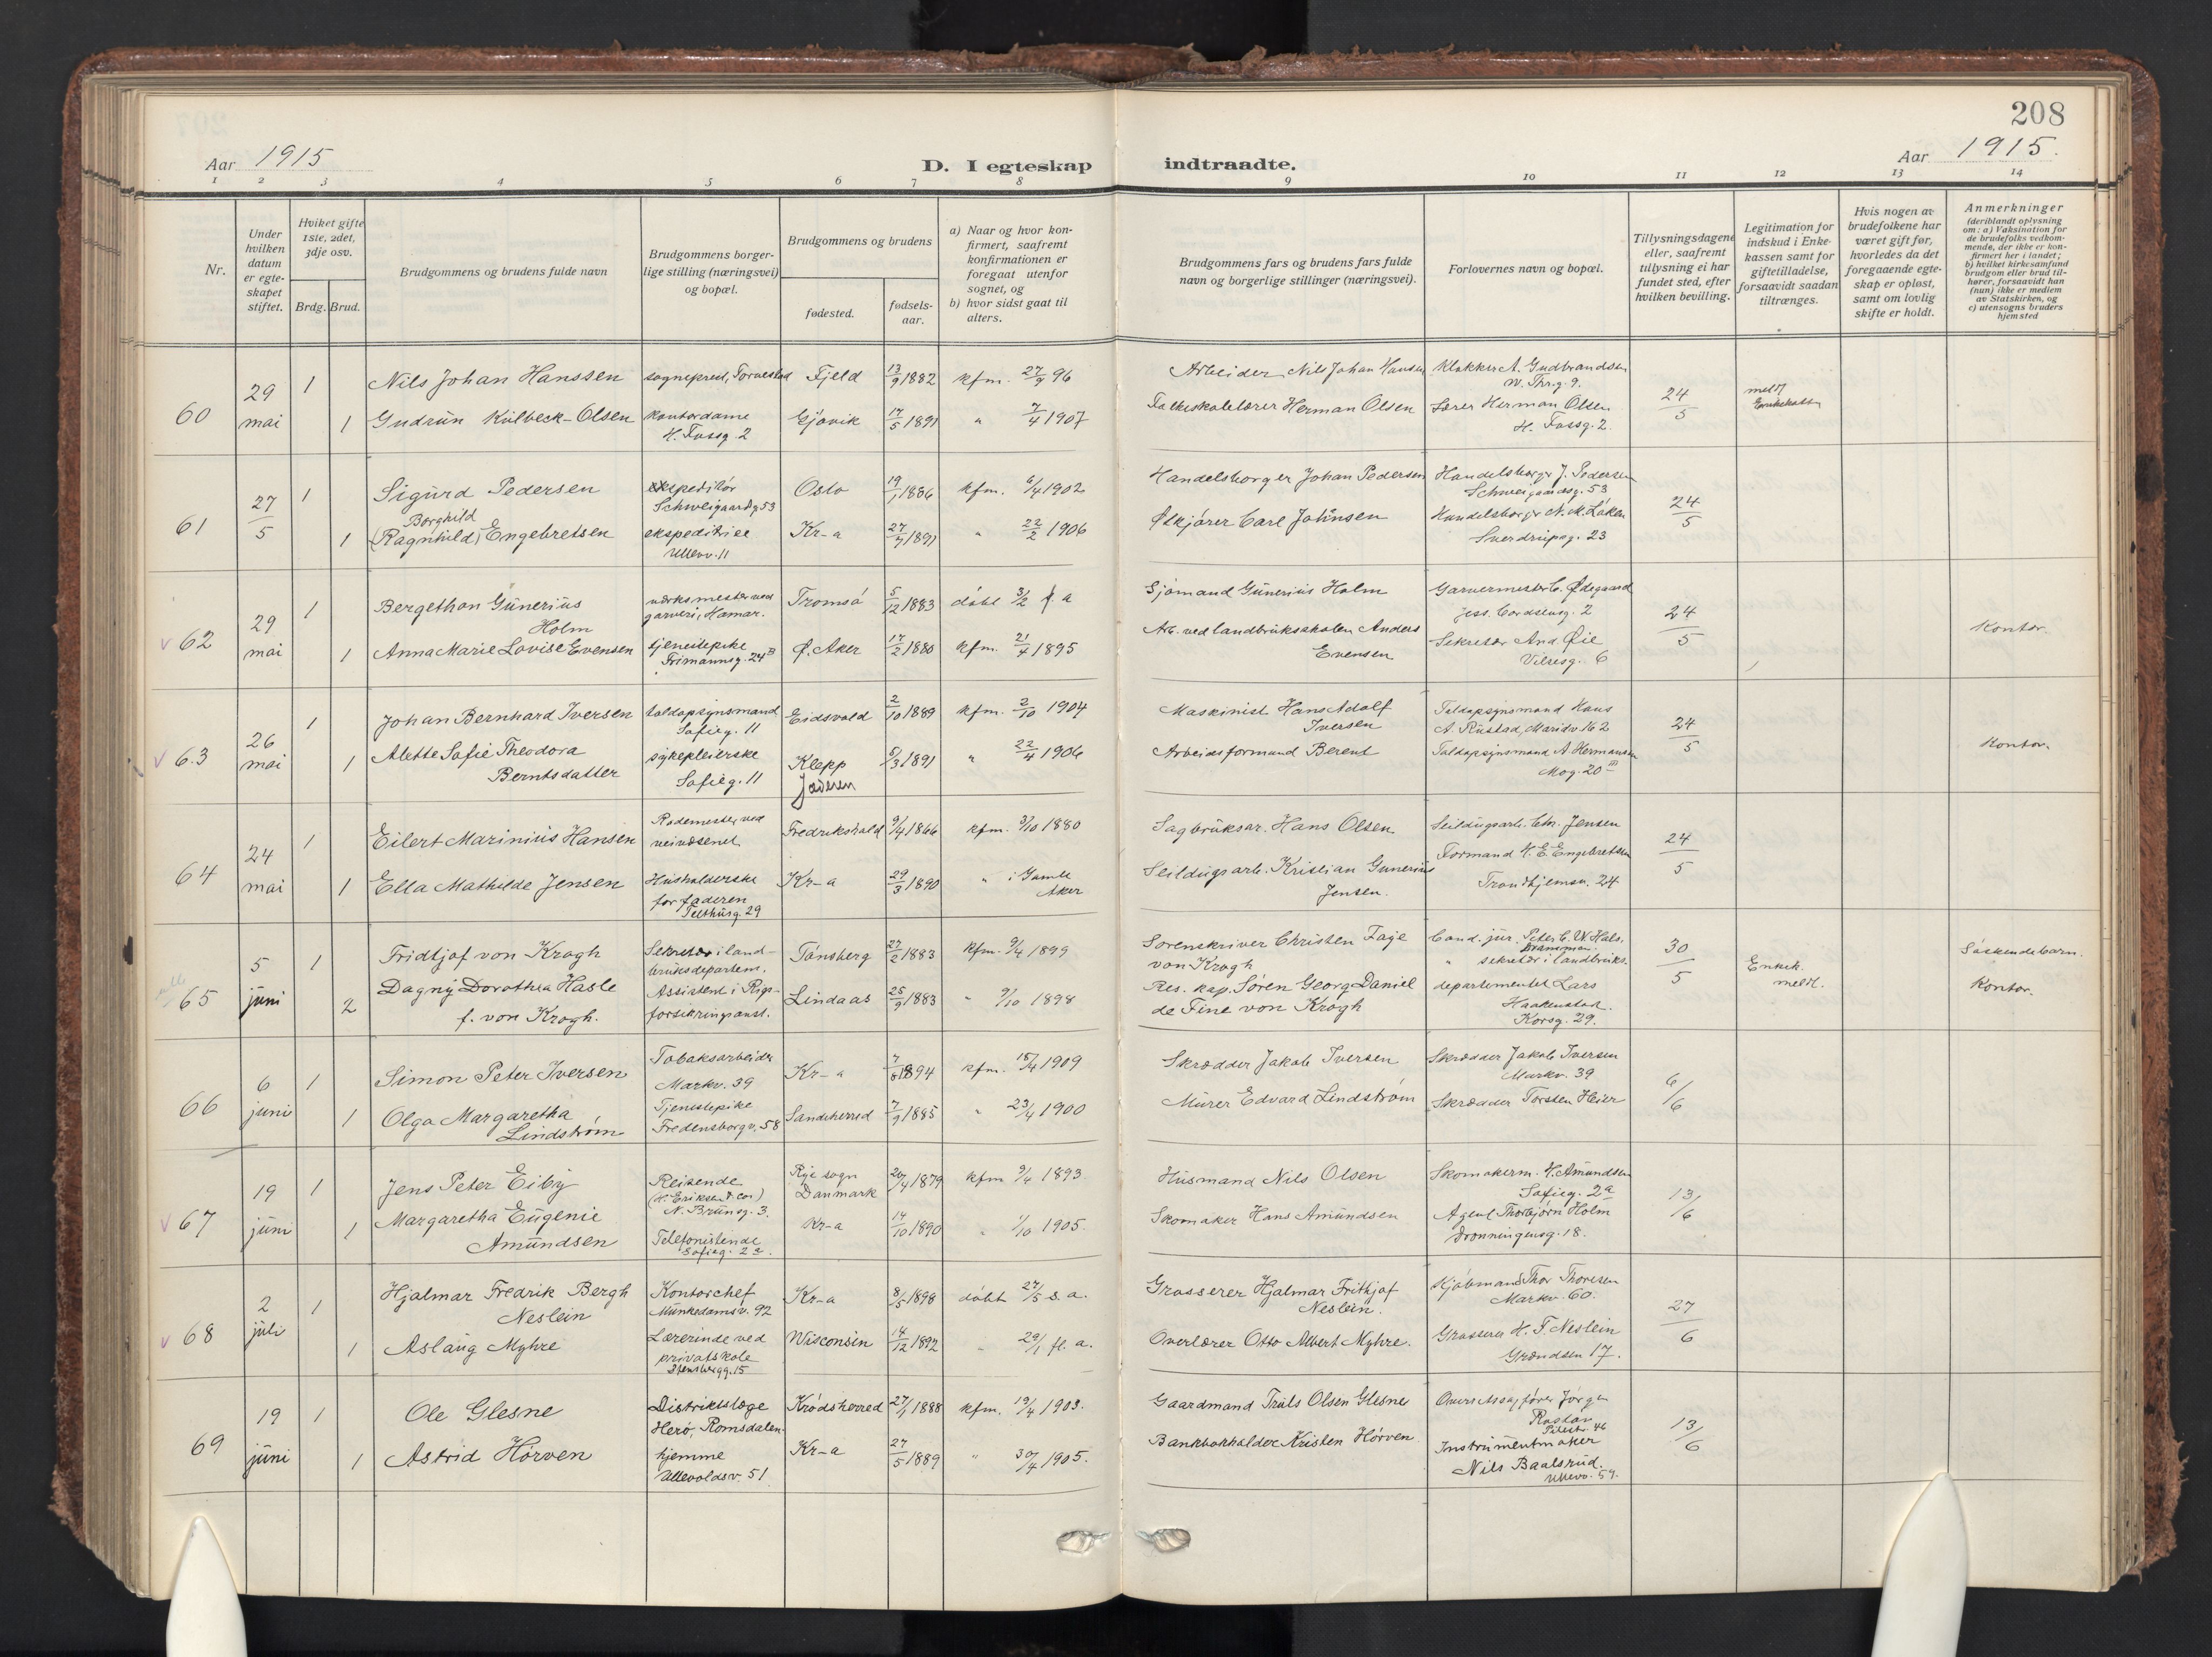 208
Aar 1915
D. I egteskap indtraadte.
Aar 1915.
1 2 3 4 5 6 7 8 9 10 11 12 13 14
Nr.
Under hvilken datum er egte- skapet stiftet.
Hviket gifte 1ste, 2det, 3dje osv.
Brdg. Brud.
Brudgommens og brudens fulde navn
Brudgommens borger- lige stilling (næringsvei) og bopæl.
Brudgommens og brudens
fødested.
fødsels- aar.
a) Naar og hvor kon- firmert, saafremt konfirmationen er foregaat utenfor sognet, og
b) hvor sidst gaat til alters.
Brudgommens fars og brudens fars fulde navn og borgerlige stillinger (næringsvei).
Forlovernes navn og bopæl.
Tillysningsdagene eller, saafremt tillysning ei har fundet sted, efter hvilken bevilling.
Legitimation for indskud i Enke- kassen samt for giftetilladelse, forsaavidt saadan tiltrænges.
Hvis nogen av brudefolkene har været gift før, hvorledes da det foregaaende egte- skap er opløst, samt om lovlig skifte er holdt.
Anmerkninger (deriblandt oplysning om: a) Vaksination for de brudefolks vedkom- mende, der ikke er kon- firmert her i landet; b) hvilket kirkesamfund brudgom eller brud til- hører, forsaavidt han (hun) ikke er medlem av Statskirken, og c) utensogns bruders hjemsted
60
29 mai
1 Nils Johan Hanssen sogneprest, Torvestad Fjeld 13/9 1882 kfm. 27/9 96
Arbeider Nils Johan Hansen
Klokker A. Gudbrandsen
W. Thr.g. 9.
24/5
meldt
1 Gudrun Kulbeck-Olsen kontordame
H. Fossg. 2
Gjøvik 14/5 1891 " 7/4 1907
Folkeskolelærer Herman Olsen
Lærer Herman Olsen
H. Fossg. 2.
61
27/5
1 Sigurd Pedersen ekspeditør
Schweigaardg 53
Oslo 19/1 1886 kfm. 6/4 1902
Handelsborger Johan Pedersen
Handelsborger J. Pedersen
Schweigaardsg. 53
24/5
Borghild
1 (Ragnhild) Engebretsen ekspeditrice
Ullevv. 11
Kr-a 27/7 1891 " 22/2 1906
Ølkjører Carl Johnsen
Handelsborger N. M. Løken
Sverdrupsg. 23
62
29 mai
1 Bergethon Gunerius
Holm
verksmester ved
garveri, Hamar.
Tromsø 5/12 1883 døbt 3/2 f. a
Sjømand Gunerius Holm
Garvermester C. Ødegaard
2
24/5
Kontor.
1 Anna Marie Lovise Evensen tjenestepike
Frimannsg. 24 III
Ø. Aker 17/2 1880 kfm. 21/4 1895
Arb. ved landbruksskolen Anders
Evensen
Sekretær And. Øie
Vibesg. 6
63
26 mai
1 Johan Bernhard Iversen toldopsynsmand
Sofieg. 11
Eidsvold 2/10 1889 kfm. 2/10 1904
Maskinist Hans Adolf
Iversen
Toldopsynsmand Hans
A. Rustad, Maridv. 162
24/5
Kontor.
1 Alette Sofie Theodora
Berntsdatter
sykepleierske
Sofieg. 11
Klepp
Jæderen
5/3 1891 " 22/4 1906
Arbeidsformand Berent
Toldopsynsmand A. Hermansen
Mog. 20 III
64
24 mai
1 Eilert Marinius Hansen Rodemester ved
veivæsenet
Fredrikshald 9/4 1866 kfm. 3/10 1880
Sagbruksar. Hans Olsen
Seildugsarb. Chr. Jensen
24/5
1 Ella Mathilde Jensen Husholderske
for faderen
Telthusg. 29
Kr-a 29/3 1890 " i Gamle
Aker
Seildugsarb. Kristian Gunerius
Jensen.
Formand H. E. Engebretsen
Trondhjemsv. 24
65
5 juni
1 Fridtjof von Krogh Sekretær i land-
bruksdepartem.
Tønsberg 27/2 1883 kfm. 9/4 1899
Sorenskriver Christen Faye
von Krogh
Cand. jur. Peter C. W. Hals.
Dramman.
30/5
Enkek.
meldt.
Søskendebarn.
2 Dagny Dorothea Hasle
f. von Krogh.
Assistent i Rigs-
forsikringsanst.
Lindaas 25/9 1883 " 9/10 1898
Res. kap. Søren Georg Daniel
de Fine von Krogh
" sekretær i landbruks-
departementet Lars
Haakenstad
Korsg. 29.
Kontor.
66
6 juni
1 Simon Peter Iversen Tobaksarbeider
Markv. 39
Kr-a 7/8 1894 kfm. 18/4 1909
Skrædder Jakob Iversen
Skrædder Jakob Iversen
Markv. 39
6/6
1 Olga Margaretha
Lindstrøm
Tjenestepike
Fredensborgv. 58
Sandeherred 7/9 1885 " 23/4 1900
Murer Edvard Lindstrøm
Skrædder Torsten Heier
67
19 juni
1 Jens Peter Eiby Reisende
(H. Eriksen & co)
N. Brunsg. 3.
Rye sogn
Danmark
20/4 1879 kfm 9/4 1893
Husmand Nils Olsen
Skomakerm. H. Amundsen
Sofieg. 2a
13/6
1 Margaretha Eugenie
Amundsen
Telefonistinde
Sofieg. 2a.
Kr-a 14/10 1890 " 1/10 1905.
Skomaker Hans Amundsen
Agent Thorbjørn Holm
Dronningensg. 18.
68
2 juli
1 Hjalmar Fredrik Bergh
Neslein
Kontorchef
Munkedamsv. 92
Kr-a 8/5 1898 døbt 27/5 s. a.
Grosserer Hjalmar Frithjof
Neslein.
Kjøbmand Thor Thoresen
Markv. 60.
27/6
1 Aslaug Myhre Lærerinde ved
privatskole
Stensbergg. 15
Wisconsin 14/12 1892 " 29/1 fl. a.
Overlærer Otto Albert Myhre.
Grosserer H. F. Neslein
Grændsen 17.
69
19 juni
1 Ole Glesne Distriktslæge
Herø, Romsdalen.
Krødsherred 27/1 1888 kfm. 19/4 1903.
Gaardmand Truls Olsen Glesne
Overretssagfører Jørgen
Pilestr. 46
13/6
1 Astrid Hørven hjemme
Ullevoldsv. 51
Kr-a 27/5 1889 " 30/4 1905.
Bankbokholder Kristen Hørven
Instrumentmaker
Nils Baalsrud.
Ullevv. 59.